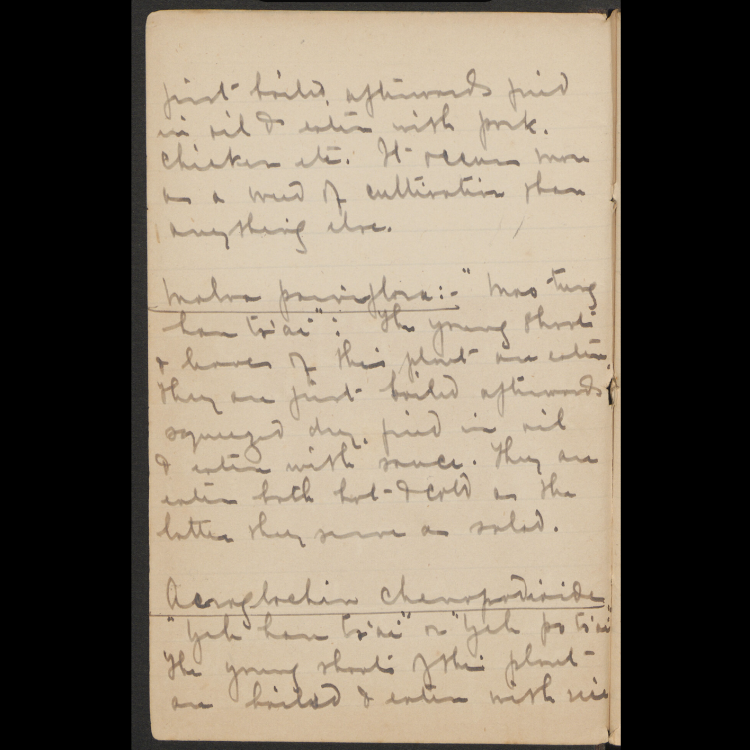 first boiled, afterwards fried
in oil & eaten with pork,
chicken etc. It occurs more
as a weed of cultivation than
anything else.
Malva parviflora:- "Mao-tung
han ts'ai": The young shoots
& leaves of this plant are eaten.
They are first boiled afterwards
squeezed dry, fried in oil
& eaten with sauce. They are
eaten both hot & cold as the
latter they serve as salad.
Acroglochin chenopodioide
"Yeh han ts'ai" or "Yeh po ts'ai
The young shoots of this plant
are boiled & eaten with